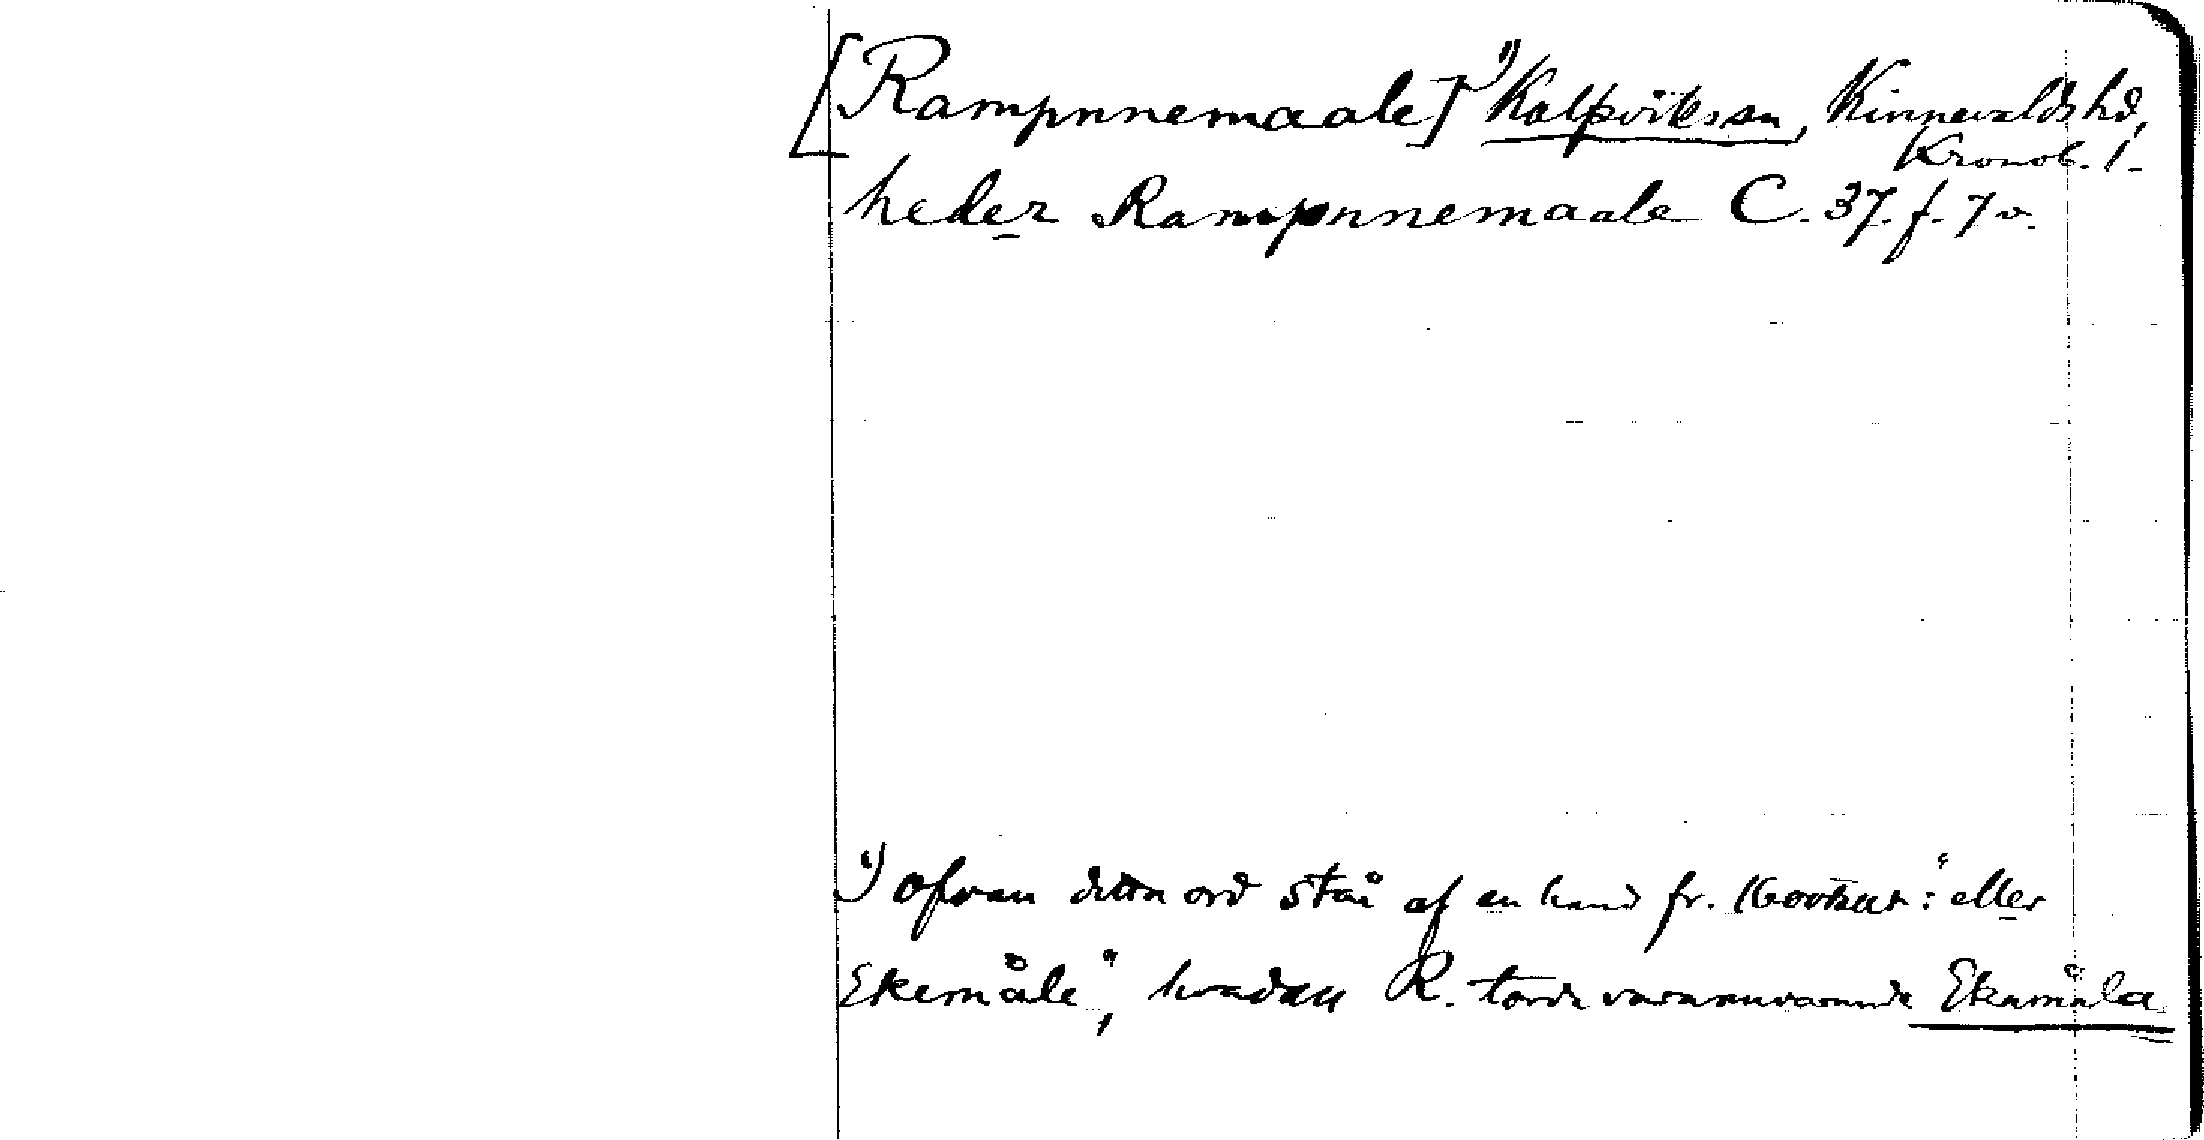 [Rampnnemaale] ¹⁾ Kalfsviks sn, Kinnevalds hd,
Kronob. l.
heder Rampnnemaale C. 37. f. 7 v.
¹⁾ ofvan detta ord står af en hand fr. 1600talet: "eller
Ekemåle", hvadan R. torde vara nuvarande Ekamåla